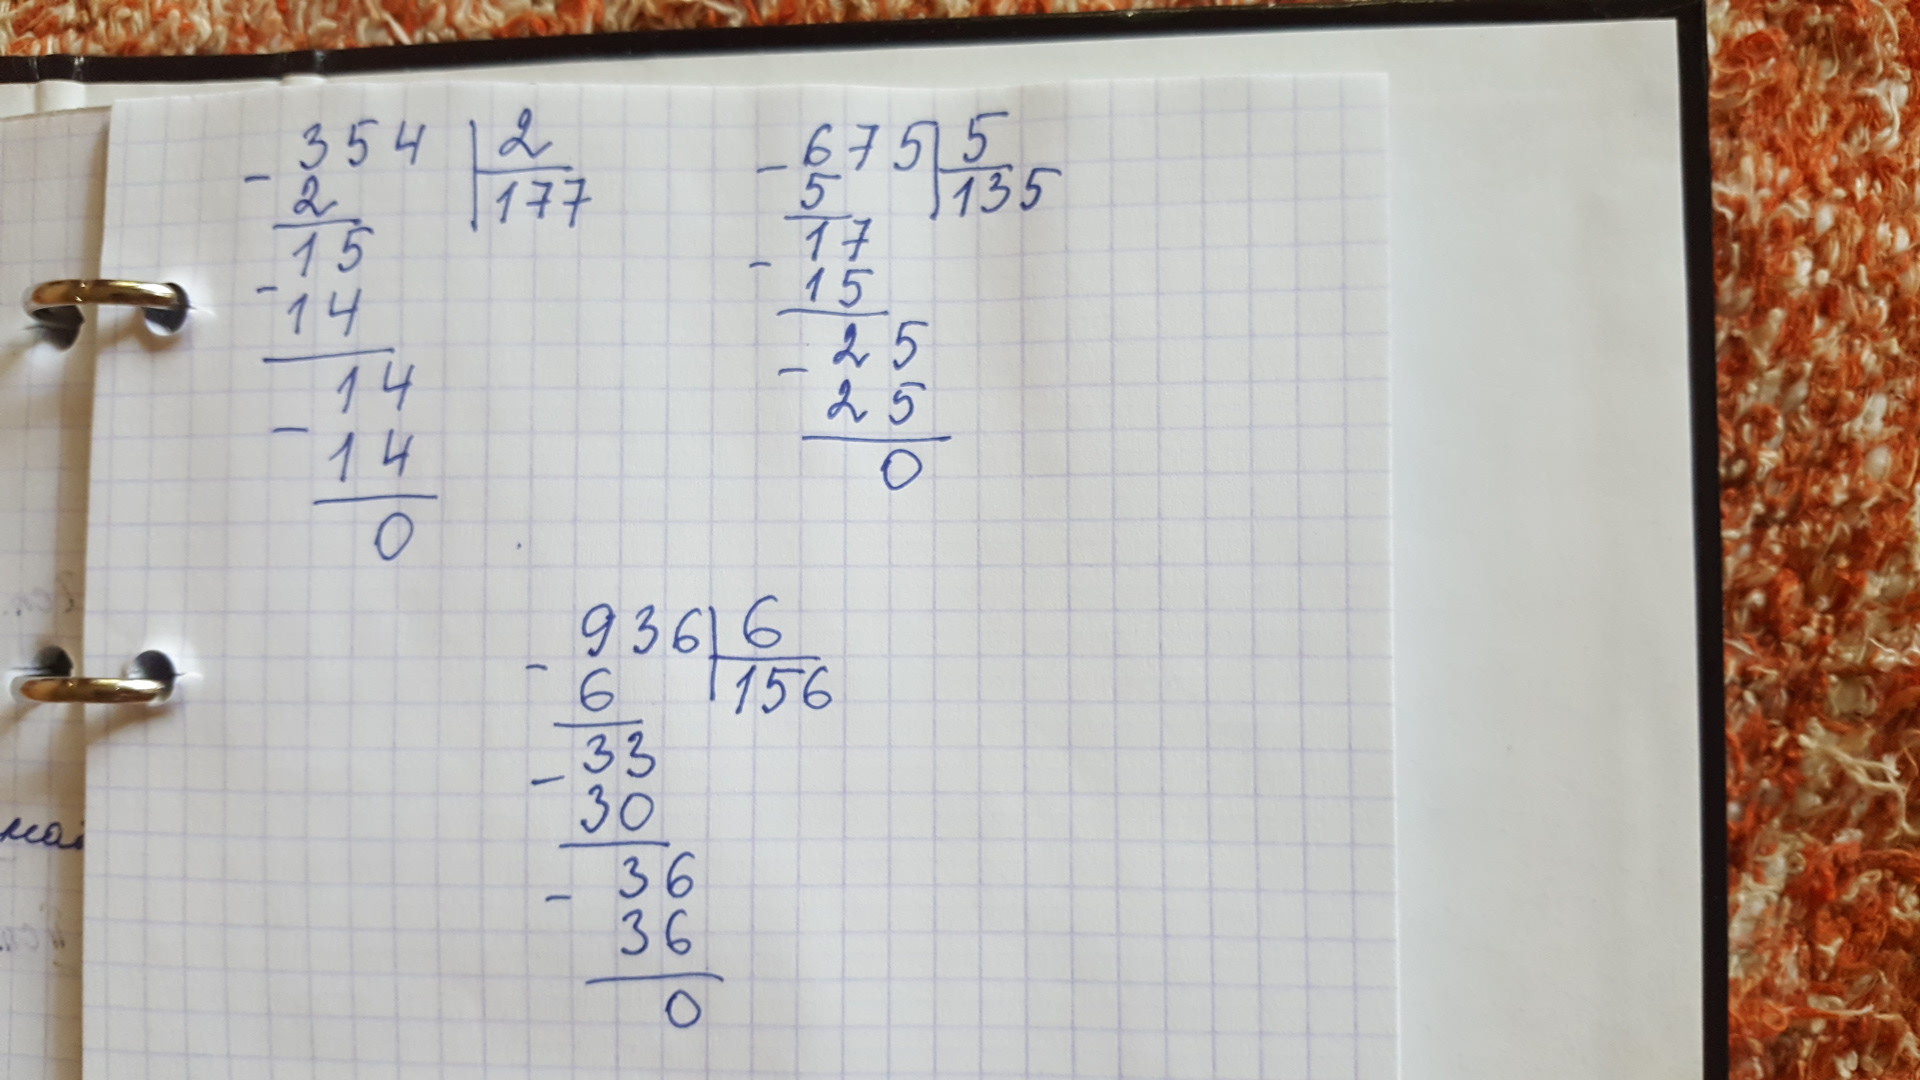 354 | 2
- 2 | 177
15
- 14
14
- 14
0
675 | 5
- 5 | 135
17
- 15
25
- 25
0
936 | 6
- 6 | 156
33
- 30
36
- 36
0